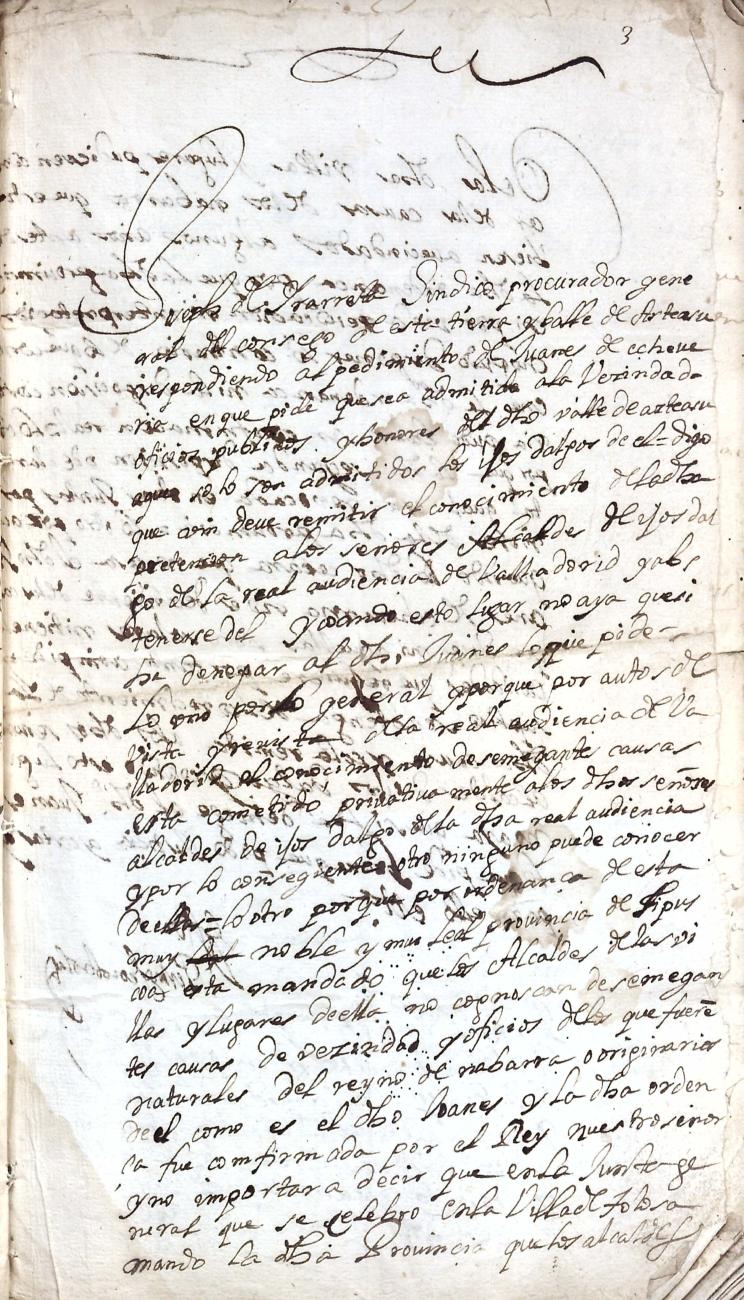 3
de Yrarreta Sindico procurador gene
ral del consejo de esta tierra y balle de Arteasu
respondiendo al pedimiento de Juanes de echeve
rria en que pide que sea admitido a la Vezindad
oficios publicos y honores del dho valle de arteasu
a que solo son admitidos los ijos dalgos de el = digo
que vm deve remitir el conocimiento de la dha
pretension a los señores Alcaldes de ijos dal
go de la real audiencia de Valladorid y abs
tenerse del y quando esto lugar no aya que si
ha denegar al dho Juanes lo que pide =
Lo uno por lo general y porque por autos de
vista y revista de la real audiencia de Va
lladorid el conocimiento de semegantes causas
esta cometido privativamente a los dhos señores
alcaldes de ijos dalgo de la dha real audiencia
y por lo consequiente otro ninguno puede conocer
de ellas = lo otro porque por ordenança de esta
muy noble y muy leal provincia de Gipus
coa esta mandado que los Alcaldes de las vi
llas y lugares de ella no cognoscan de semegan
tes causas de vezindad y oficios de los que fueren
naturales del reyno de nabarra o originarios
de el como es el dho Joanes y la dha orden
ça fue comfirmada por el Rey nuestro señor
y no importara decir que en la Junta ge
neral que se celebro en la Villa de Tolosa
mando la dha Provincia que los alcaldes